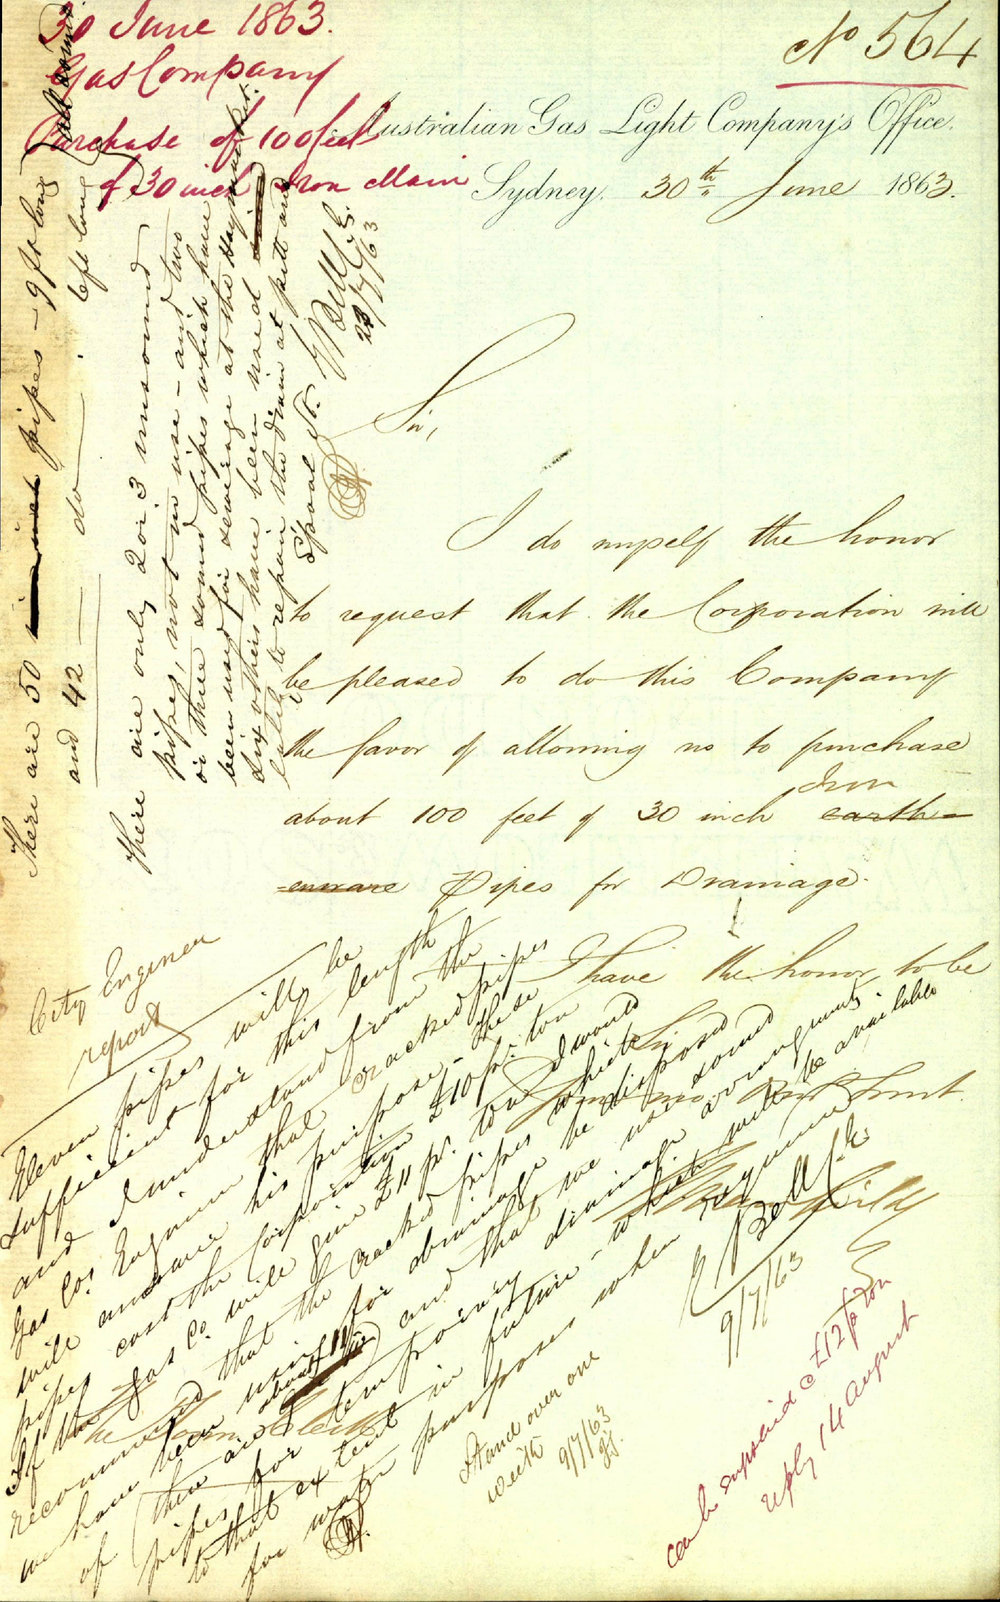 30 June 1863.
Gas Company
Purchase of 100 feet
of 30 inch Iron Main
No 564
Australian Gas Light Company's Office.
Sydney. 30th June 1863.
Sir,
I do myself the honor
to request that the Corporation will
be pleased to do this Company
the favor of allowing us to purchase
about 100 feet of 30 inch earthen-
Iron
ware Pipes for Drainage.
I have the honor to be
Sir
Your
The Town Clerk
There are 50 pipes - 9 ft long
and 42 - do - 6 ft long
all sound
There are only 2 or 3 unsound
pipes, not in use - and two
or three sound pipes which have
been used for sewerage at the Haymarket.
Six others have been used
lately to repair the drain at Pitt and
Spring St.
E Bell C.E.
23/7/63
City Engineer
report
Eleven pipes will be
sufficient for this length
and I understand from the
Gas Co's Engineer that cracked pipes
will answer his purpose - These
pipes cost the Corporation £10 pr. ton
If the Gas Co. will give £11 pr. ton I would
recommend that the cracked pipes which
we have been using for drainage be disposed
of (there are about 11) and that we use sound
pipes for temporary drainage arrangements
to that extent in future - which will be available
for water purposes when required
E Bell C.E.
9/7/63
Stand over one
week 9/7/63
can be supplied @ £12 p ton
reply 14 August